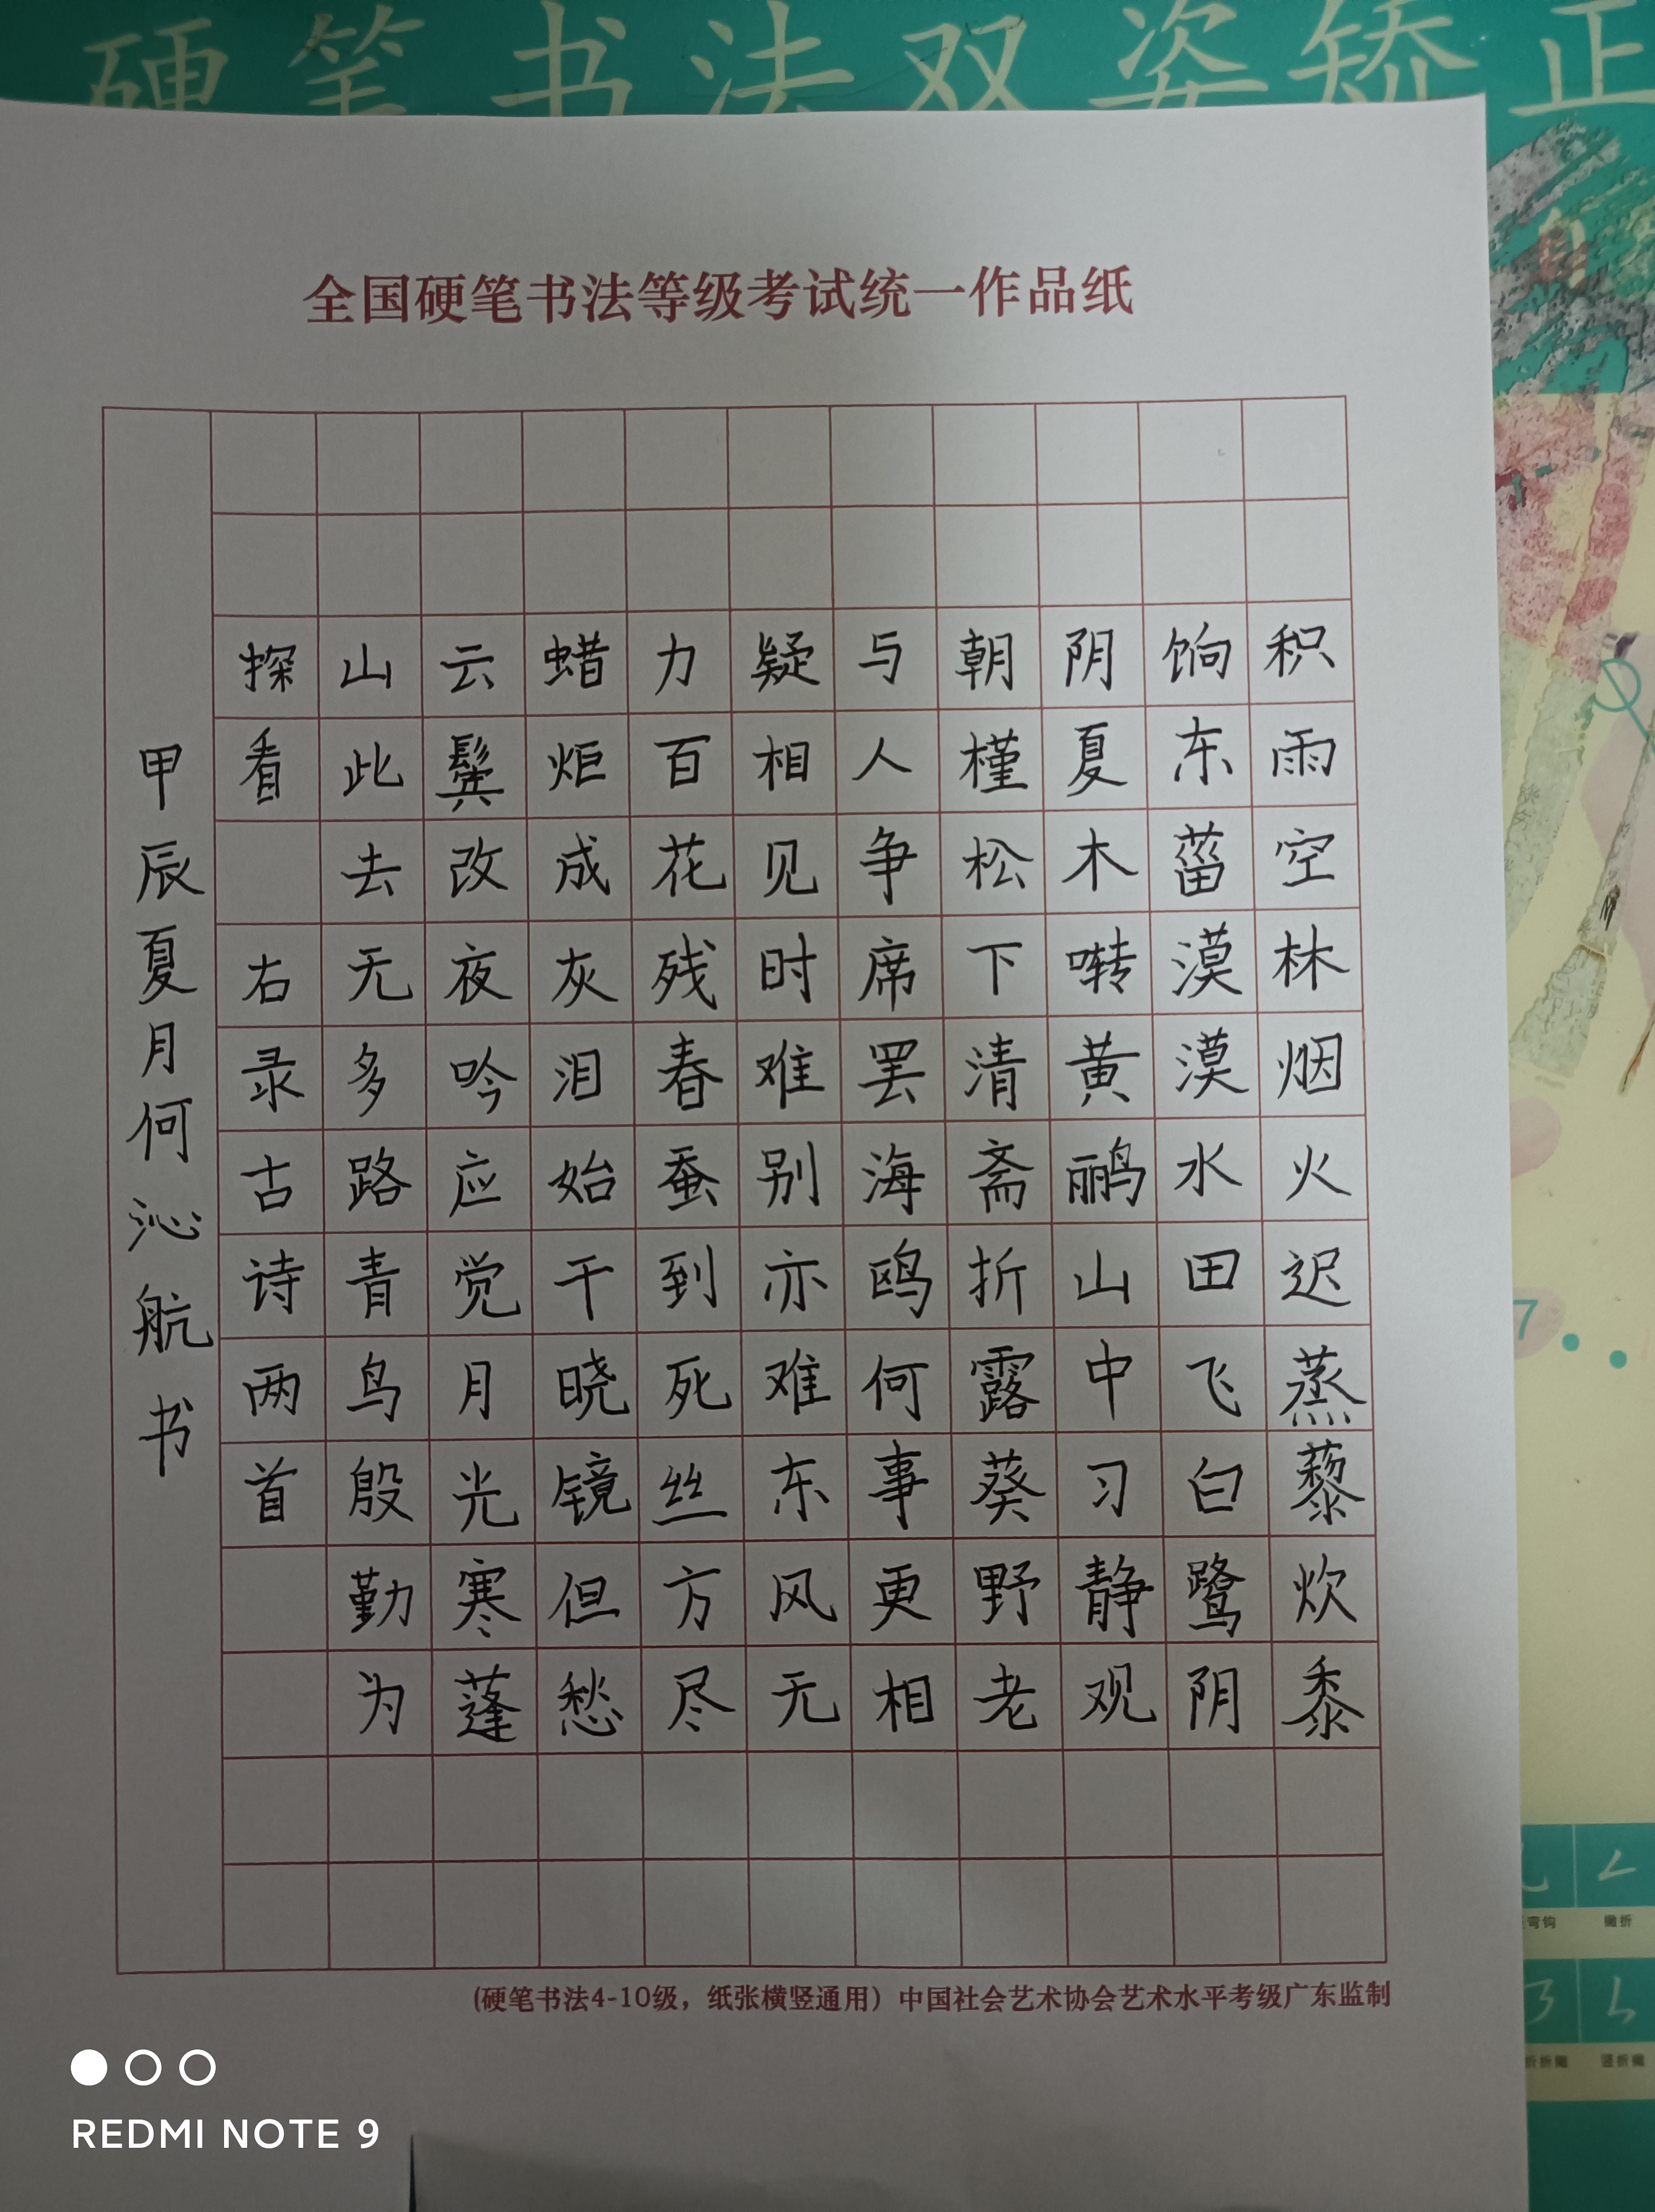 硬笔书法双姿矫正
全国硬笔书法等级考试统一作品纸
积雨空林烟火迟蒸藜炊黍
饷东菑漠漠水田飞白鹭阴
阴夏木啭黄鹂山中习静观
朝槿松下清斋折露葵野老
与人争席罢海鸥何事更相
疑相见时难别亦难东风无
力百花残春蚕到死丝方尽
蜡炬成灰泪始干晓镜但愁
云鬓改夜吟应觉月光寒蓬
山此去无多路青鸟殷勤为
探看 右录古诗两首
甲辰夏月何沁航书
(硬笔书法4-10级，纸张横竖通用）中国社会艺术协会艺术水平考级广东监制
弯钩
撇折
折折撇
竖折撇
REDMI NOTE 9